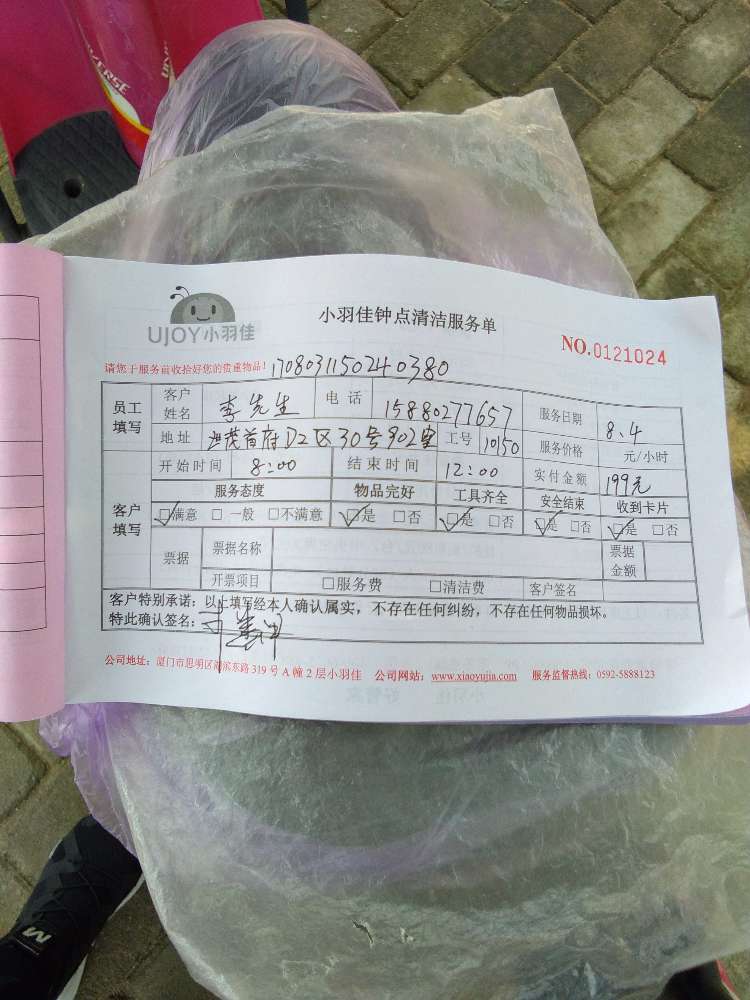 VERSE
UJOY小羽佳
小羽佳钟点清洁服务单
NO.0121024
请您于服务前收拾好您的贵重物品!
170803115024 0380
员工填写 客户姓名 李先生 电话 15880277657 服务日期 8.4
地址 首府D2区30号902室 工号 10150 服务价格 元/小时
开始时间 8:00 结束时间 12:00 实付金额 199元
客户填写 服务态度 物品完好 工具齐全 安全结束 收到卡片
☑满意 □一般 □不满意 ☑是 □否 ☑是 □否 ☑是 □否 ☑是 □否
票据 票据名称 票据金额
开票项目 □服务费 □清洁费 客户签名
客户特别承诺:以上填写经本人确认属实,不存在任何纠纷,不存在任何物品损坏。
特此确认签名:
公司地址:厦门市思明区湖滨东路319号A幢2层小羽佳 公司网站:www.xiaoyujia.com 服务监督热线:0592-5888123